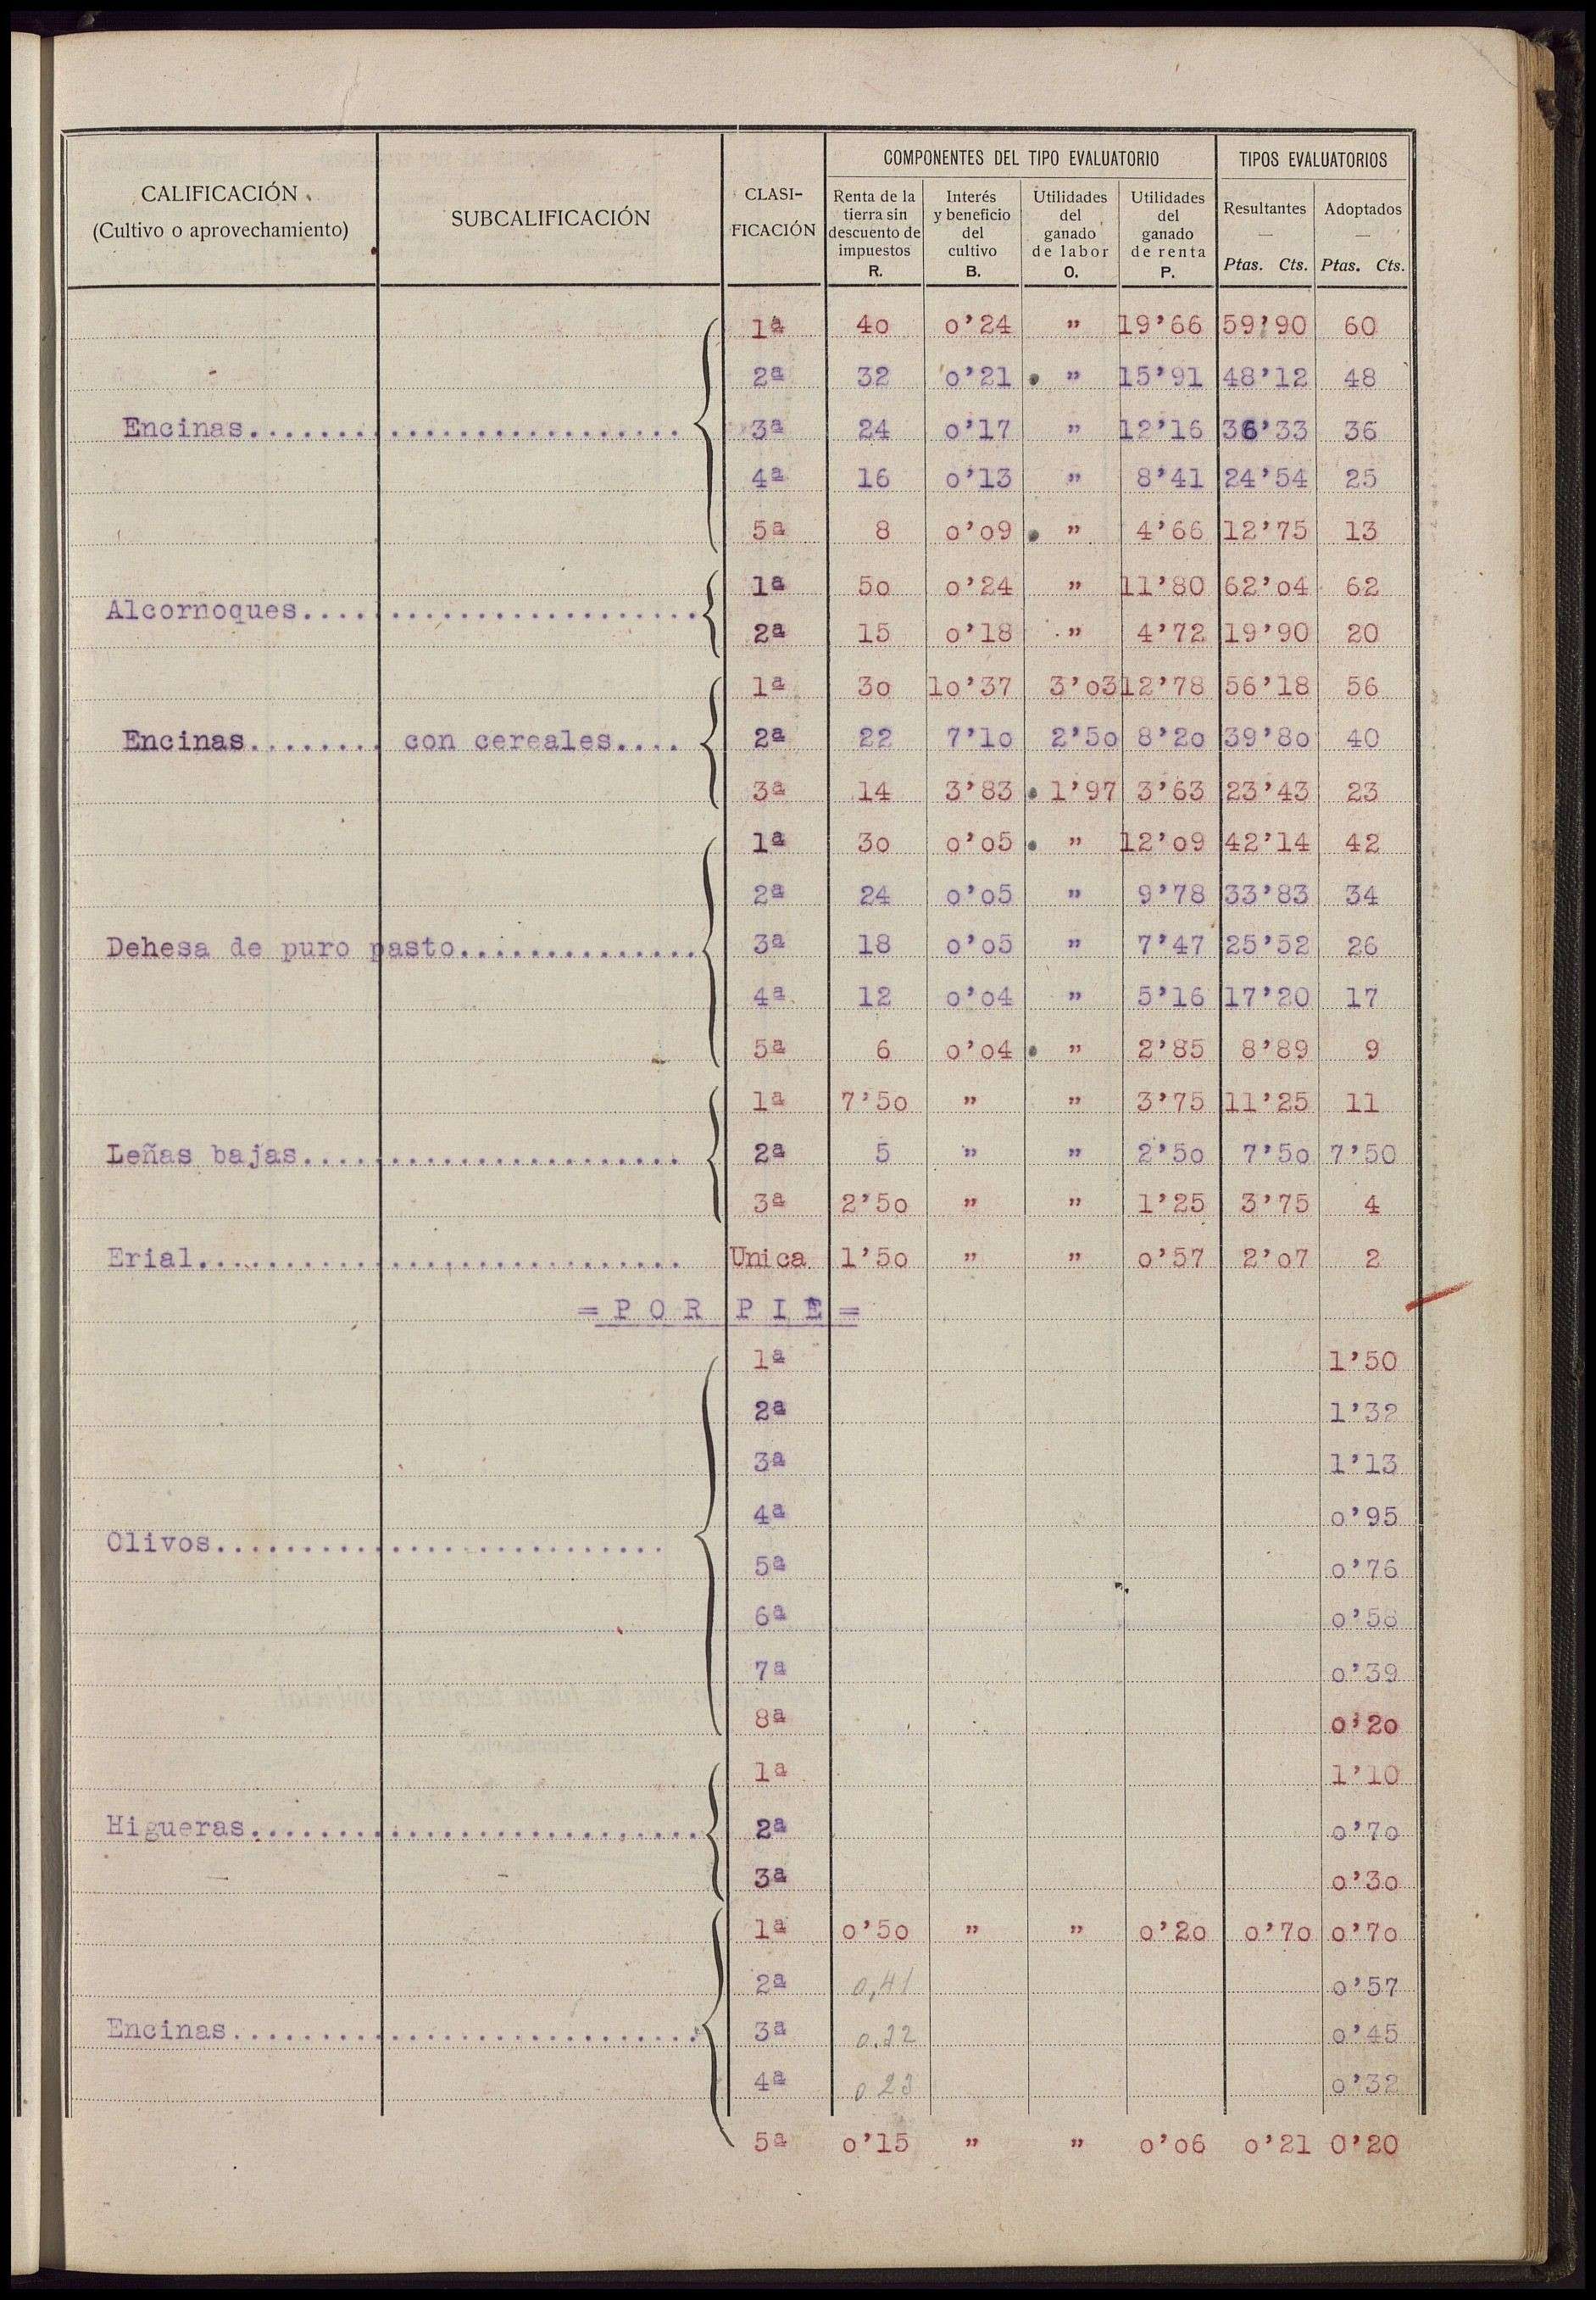 COMPONENTES DEL TIPO EVALUATORIO TIPOS EVALUATORIOS
CALIFICACIÓN
(Cultivo o aprovechamiento)
SUBCALIFICACIÓN
CLASI-
FICACIÓN
Renta de la
tierra sin
descuento de
impuestos
R.
Interés
y beneficio
del
cultivo
B.
Utilidades
del
ganado
de labor
O.
Utilidades
del
ganado
de renta
P.
Resultantes
—
Ptas. Cts.
Adoptados
—
Ptas. Cts.
1ª 40 0'24 " 19'66 59'90 60
2ª 32 0'21 " 15'91 48'12 48
Encinas.......................... 3ª 24 0'17 " 12'16 36'33 36
4ª 16 0'13 " 8'41 24'54 25
5ª 8 0'09 " 4'66 12'75 13
1ª 50 0'24 " 11'80 62'04 62
Alcornoques.......................
2ª 15 0'18 " 4'72 19'90 20
1ª 30 10'37 3'03 12'78 56'18 56
Encinas........ con cereales.... 2ª 22 7'10 2'50 8'20 39'80 40
3ª 14 3'83 1'97 3'63 23'43 23
1ª 30 0'05 " 12'09 42'14 42
2ª 24 0'05 " 9'78 33'83 34
Dehesa de puro pasto.............. 3ª 18 0'05 " 7'47 25'52 26
4ª 12 0'04 " 5'16 17'20 17
5ª 6 0'04 " 2'85 8'89 9
1ª 7'50 " " 3'75 11'25 11
Leñas bajas...................... 2ª 5 " " 2'50 7'50 7'50
3ª 2'50 " " 1'25 3'75 4
Erial............................ Unica 1'50 " " 0'57 2'07 2
= P O R P I E =
1ª 1'50
2ª 1'32
3ª 1'13
4ª 0'95
Olivos..........................
5ª 0'76
6ª 0'58
7ª 0'39
8ª 0'20
1ª 1'10
Higueras.......................... 2ª 0'70
3ª 0'30
1ª 0'50 " " 0'20 0'70 0'70
2ª 0,41 0'57
Encinas........................... 3ª 0.32 0'45
4ª 0 23 0'32
5ª 0'15 " " 0'06 0'21 0'20